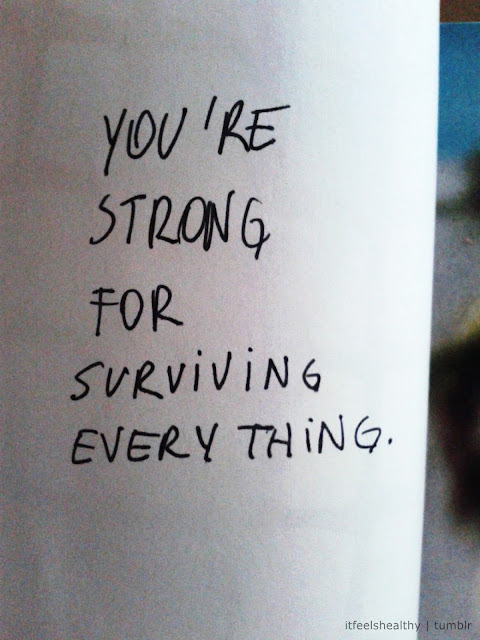 YOU'RE
STRONG
FOR
SURViViNG
EVERY THiNG.
itfeelshealthy | tumblr